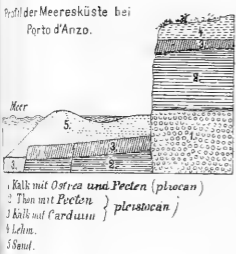 Profil der Meeresküste bei
Porto d'Anzo.
4.
3.
2.
Meer
5.
3.
1.
3.
2.
1 Kalk mit Ostrea und Pecten (pliocän)
2 Thon mit Pecten
3 Kalk mit Cardium } pleistocän
4 Lehm.
5 Sand.